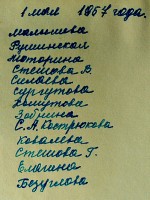 1 мая 1957 года.
Малышева
Рушинская
Моторина
Стешова В.
Силаева
Сургутова
Хомутова
Зобнина
С.А. Кострюкова
Ковалёва
Стешова Г.
Елагина
Безуглова